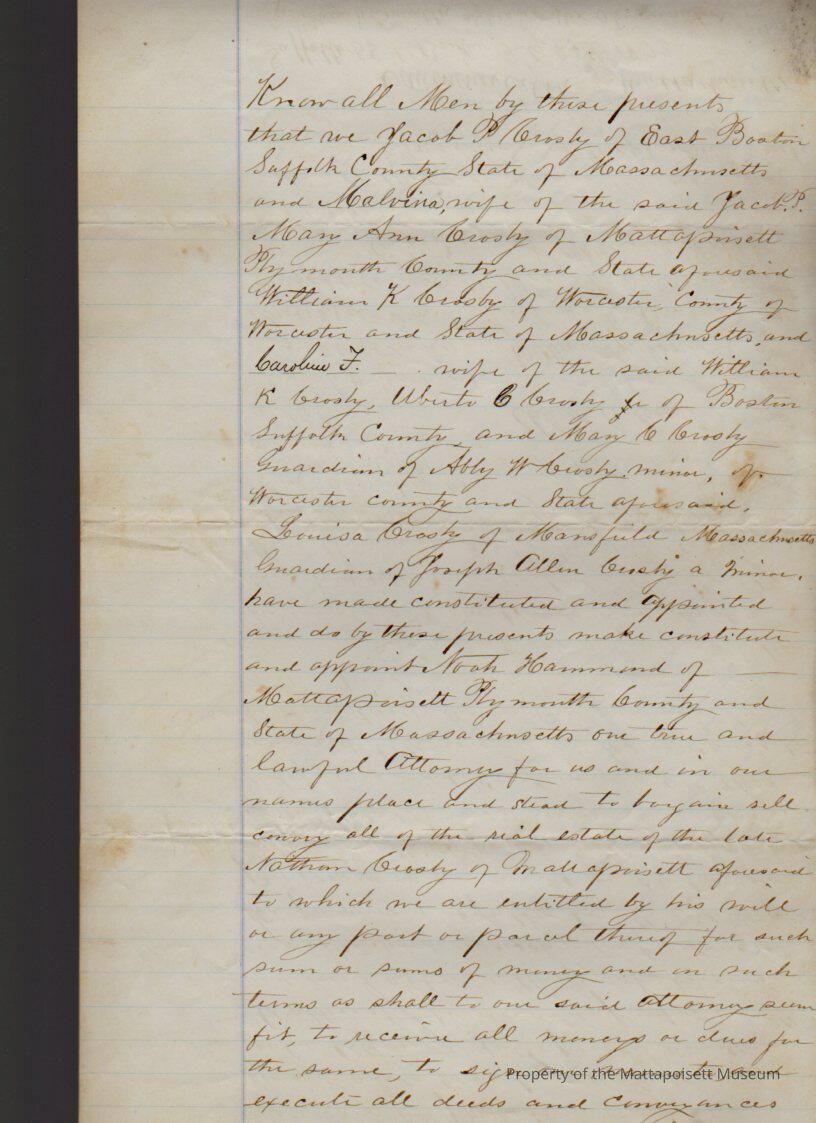 Know all Men by these presents
that we Jacob P Crosby of East Boston
Suffolk County State of Massachusetts
and Malvina, wife of the said Jacob. P.
Mary Ann Crosby of Mattapoisett
Plymouth County and State aforesaid
William K Crosby of Worcester, County of
Worcester and State of Massachusetts, and
Caroline F. wife of the said William
K Crosby, Uberto C Crosby of Boston
Suffolk County, and Mary C Crosby
Guardian of Abby W Crosby, minor, of
Worcester county and State aforesaid,
Louisa Crosby of Mansfield Massachusetts
Guardian of Joseph Allen Crosby a minor,
have made constituted and appointed
and do by these presents make constitute
and appoint Noah Hammond of
Mattapoisett Plymouth County and
State of Massachusetts our true and
lawful Attorney for us and in our
names place and stead to bargain sell
convey all of the real estate of the late
Nathan Crosby of Mattapoisett aforesaid
to which we are entitled by his will
or any part or parcel thereof for such
sum or sums of money and on such
terms as shall to our said attorney seem
fit, to receive all moneys or dues for
the same, to
Property of the Mattapoisett Museum
execute all deeds and conveyances